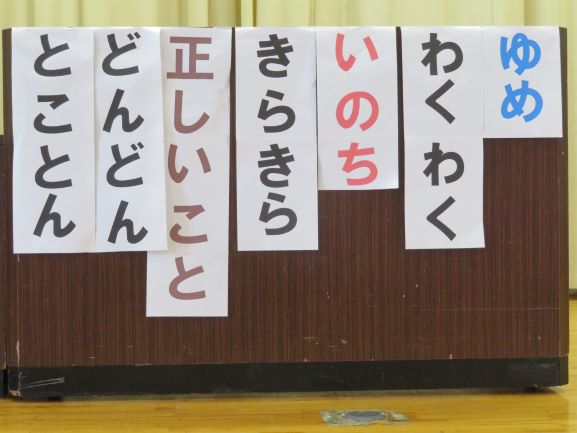 ゆめ
わくわく
いのち
きらきら
正しいこと
どんどん
とことん